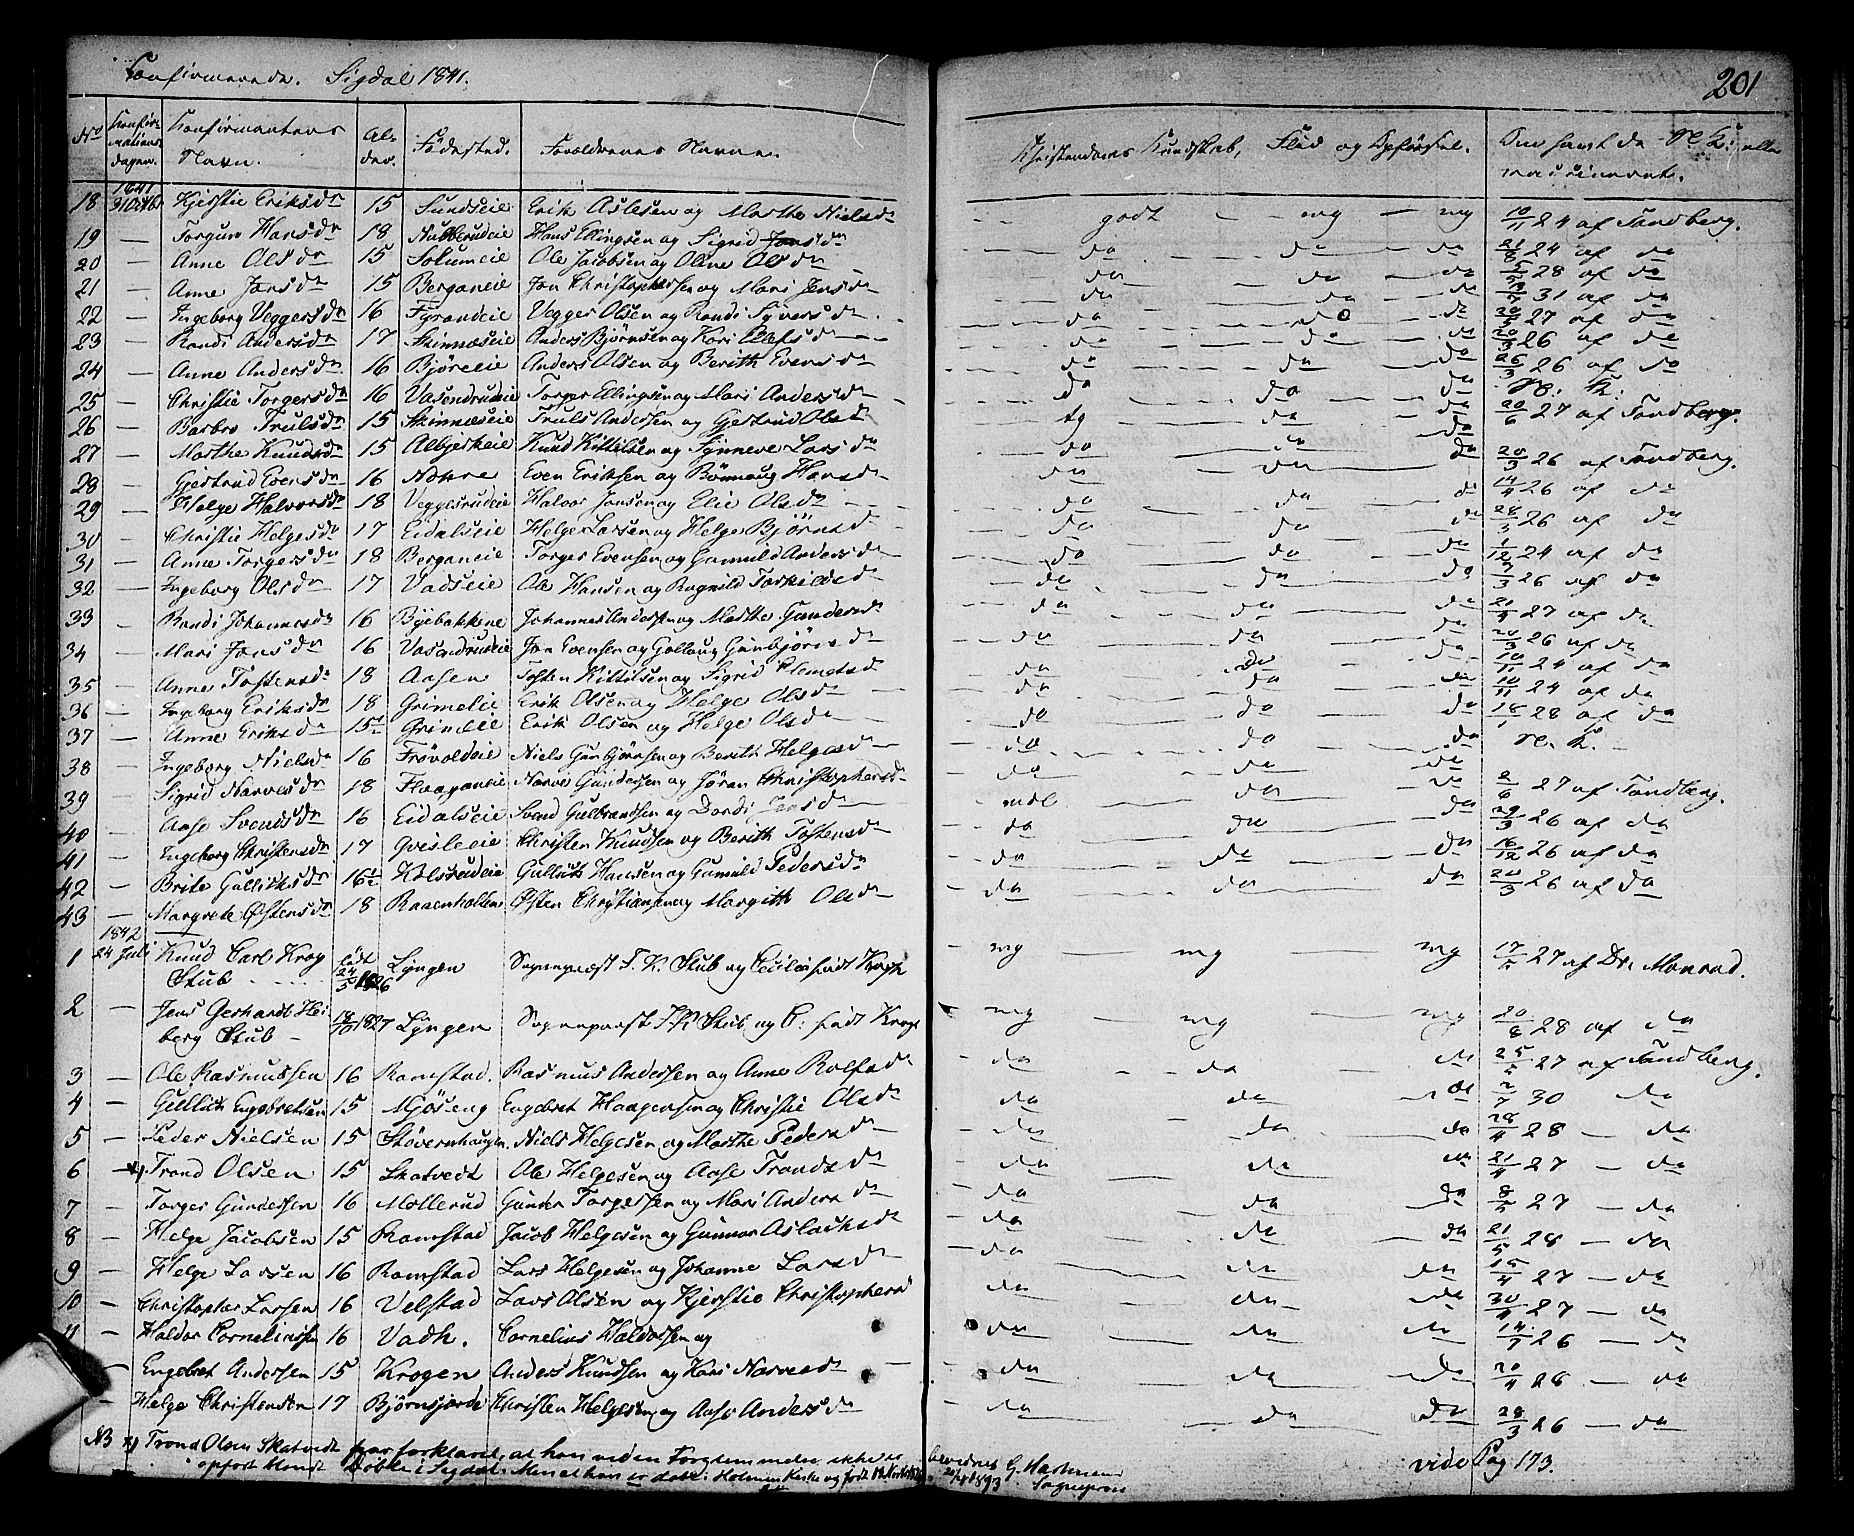 Confirmerede. Sigdal 1841.
201
No Confirmations dagen. Confirmantens Navn. Alder. Fødested. Forældrenes Navne. Christendoms Kundskab, Flid og Opførsel.
1841
18 3 Octbr Kjerstie Eriksdr 15 Sundseie Erik Aslesen og Marthe Nielsd godt mg mg 10/11 24 af Sandberg.
19 — Torgun Hansdr 18 Nubberudeie Hans Ellingsen og Sigrid Jonsdr do do do 21/8 24 af do
20 — Anne Olsdr 15 Solumeie Ole Jacobsen og Oline Olsdr do do do 28 af do
21 — Anne Jonsdr 15 Berganeie Jon Christophersen og Mari Jensdr do do do 31 af do
22 — Ingeborg Veggersdr 16 Vegger Olsen og Randi Syversdr do do do 27 af do
23 — Randi Andersdr 17 Skinnæseie Anders Bjørnsen og Kari do do do 20/3 26 af do
24 — Anne Andersdr 16 Bjøreeie Anders Olsen og Berith Evensdr do do do 26/3 26 af do
25 — Christie Torgersdr 16 Vasendrudeie Torger Ellingsen og Mari Andersdr do do do N. K.
26 — Barbro Trulsdr 15 Skinnæseie Truls Andersen og Gjertrud Olsdr tg do do 20/6 27 af Sandberg.
27 — Marthe Knudsdr 15 Albjerkeie Knud Kittilsen og Synneve Larsdr do do do
28 — Gjertrud Evensdr 16 Nohre Even Eriksen og Rønnaug Hansd do do do 20/3 26 af Sandberg.
29 — Helge Halvorsdr 18 Veggesrudeie Halvor Jonsen og Elie Olsdr do do do 14/4 26 af do
30 — Christie Helgesdr 17 Eidalseie Helge Larsen og Helge Bjørnsd do do do 28/3 26 af do
31 — Anne Torgersdr 18 Berganeie Torger Evensen og Gunnild Andersdr do do do 1/12 24 af do
32 — Ingeborg Olsdr 17 Vadseie Ole Hansen og Ragnild Torkildsd do do do 26 af do
33 — Randi Johannesdr 16 Byebakkene Johannes Andersen og Marthe Gundersdr do do do 21/4 27 af do
34 — Mari Jonsdr 16 Vasendrudeie Jon Evensen og Gollaug Gunbjørnsdr do do do 20/3 26 af do
35 — Anne Tostensdr 18 Aasen Tosten Kittilsen og Sigrid do do do 10/11 24 af do
36 — Ingeborg Eriksdr 18 Grimelie Erik Olsen og Helge Olsdr do do do 10/11 24 af do
37 — Anne Eriksdr 15½ Erik Olsen og Helge Olsdr do do do 18/1 28 af do
38 — Ingeborg Nielsdr 16 Frøvoldeie Niels Gunbjørnsen og Berith Helgesdr do do do N. K.
39 — Sigrid Narvesdr 18 Flaaganeie Narve Gundersen og Jøran Christophersdr do do do 2/6 27 af Sandberg.
40 — Aase Svendsdr 16 Eidalseie Svend Gulbrandsen og Dordi Jensdr mdl do do 29/3 26 af do
41 — Ingeborg Christensdr 17 Christen Knudsen og Berith Tostensdr do do do 16/12 26 af do
42 — Brite Gulliksdr 16½ Kolsrudeie Gullik Hansen og Gunnild Pedersdr do do do 20/3 26 af do
43 — Margrete Østensdr 18 Raaenholten Østen Christiansen og Margith Olsd do do do
1842
1 24 Juli Knud Carl Krog Stub født 24/5 1826 Lyngen Sognepræst T. K. Stub og Cecilia født Krogh mg mg mg 27 af Dr. Monrad.
2 — Jens Gerhardt Heiberg Stub 18/10 1827 Lyngen Sogneprest T. K. Stub og C. født Krogh mg mg mg 20/8 28 af do
3 — Ole Rasmussen 16 Ramstad. Rasmus Andersen og Anne Rolfsdr do do do 27 af Sandberg.
4 — Gullik Engebretsen 15 Mjøseng Engebret Haagensen og Christie Olsdr do do do 2/7 30 do
5 — Peder Nielsen 15 Støvernhaugen Niels Helgesen og Marthe Pedersdr do do do 28/4 28 — do
6 — x) Trond Olsen 15 Skatvedt Ole Helgesen og Aase Trondsdr do do do 21/4 27 — do
7 — Torger Gundersen 16 Møllerud Gunder Torgersen og Mari Andersdr do do do 27 — do
8 — Helge Jacobsen 15 Ramstad Jacob Helgesen og Gunnor Aslaksdr do do do 21/5 28 — do
9 — Helge Larsen 16 Ramstad Lars Helgesen og Johanne Larsdr do do do 15/4 27 — do
10 — Christopher Larsen 16 Velstad Lars Olsen og Kjerstie Christophersd do do do 30/4 27 — do
11 — Haldor Corneliussen 16 Vadh. Cornelius Haldorsen og do do do 14/7 26 — do
— Engebret Andersen 15 Krogen Anders Knudsen og Kari Narvesdr do do do 20/4 28 — do
— Helge Christensen 17 Bjørnsjorde Christen Helgesen og Aase Andersdr do do do 28/3 26 — do
NB x) Trond Olsen Skatvedt har forklaret, at han ved en Forglemmelse ikke er
opført blandt Døbte i Sigdal. Men at han er døbt i Holmen Kirke og født
bevidnes G. Hartmann
1893 Sogneprest
vide Pag 173.